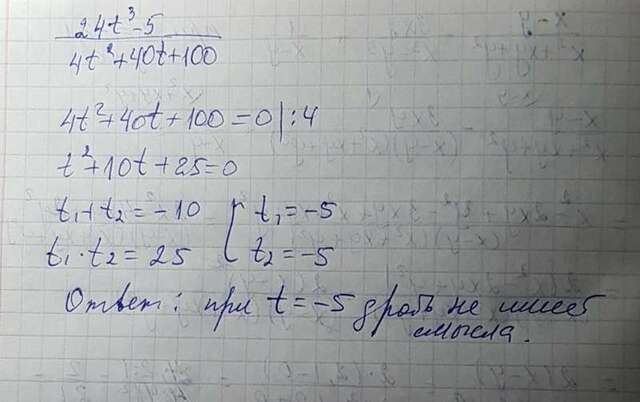 24t³-5
4t²+40t+100
4t²+40t+100=0|:4
t²+10t+25=0
t₁+t₂=-10 { t₁=-5
t₁·t₂=25 t₂=-5
Ответ: при t=-5 дробь не имеет
смысла.